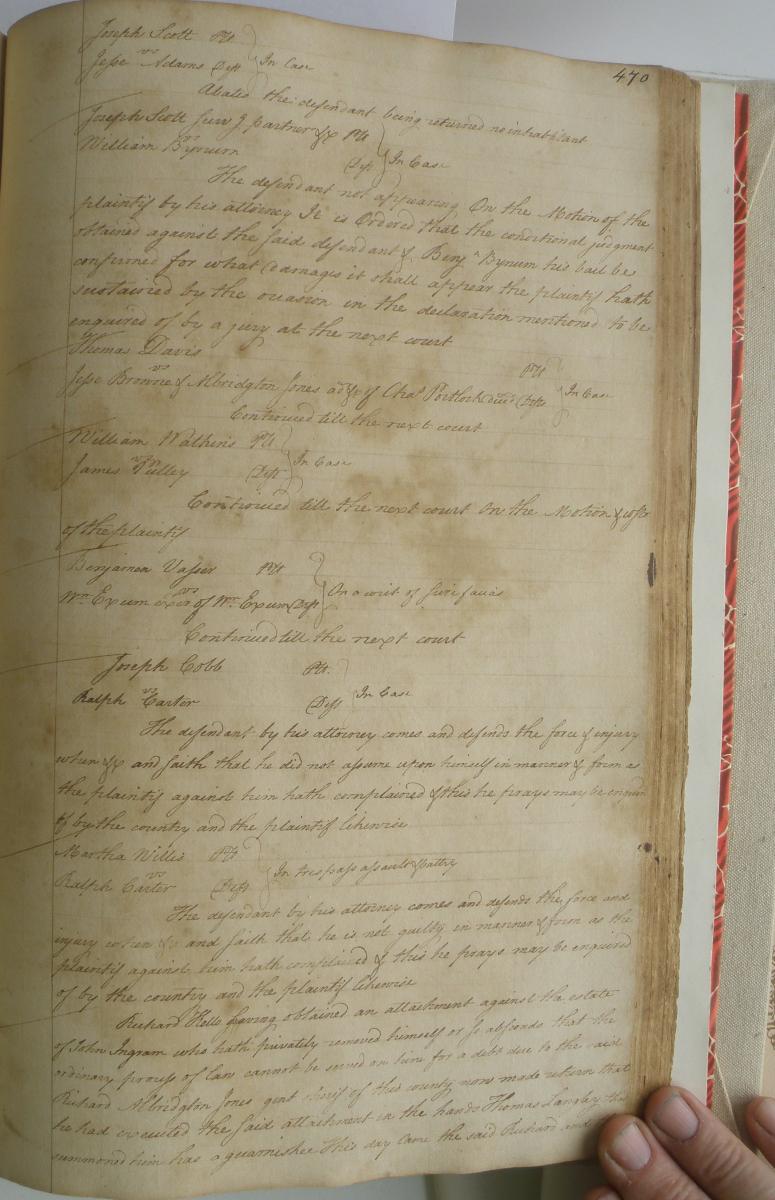 470
Joseph Scott Plt
vs In Case
Jesse Adams Deft
Abates the defendant being returned no inhabitant
Joseph Scott surv g partner &c Plt
vs In Case
William Bynum Deft
The defendant not appearing On the Motion of the
plaintif by his attorney It is Ordered that the conditional judgment
obtained against the said defendant & Benj n Bynum his bail be
confirmed for what Damages it shall appear the plaintif hath
sustained by the occasion in the declaration mentioned to be
enquired of by a jury at the next court
Thomas Davis Plt
vs In Case
Jesse Browne & Albridgton Jones of Cha s Portlock dec d Defts
Continued till the next court
William Watkins Plt
vs In Case
James Pulley Deft
Continued till the next court On the Motion & costs
of the plaintif
Benjamen Vasser Plt
vs On a writ of Scire facias
Wm Exum exor of Wm Exum Deft
Continued till the next court
Joseph Cobb Plt.
vs In Case
Ralph Carter Deft
The defendant by his attorney comes and defends the force & injury
when &c and saith that he did not assume upon himself in manner & form as
the plaintif against him hath complained & this he prays may be enquired
of by the country and the plaintif likewise
Martha Willis Plt
vs In trespass assault & battry
Ralph Carter Deft
The defendant by his attorney comes and defends the force and
injury when &c and saith that he is not guilty in manner & form as the
plaintif against him hath complained & this he prays may be enquired
of by the country and the plaintif likewise
Richard Kello having obtained an attachment against the estate
of John Ingram who hath privately removed himself or so absconds that the
ordinary process of law cannot be served on him for a debt due to the said
Richard Albridgton Jones gent sherif of this county now made return that
he had executed the said attachment in the hands Thomas Langley &
summoned him has a guarnishee This day came the said Richard and